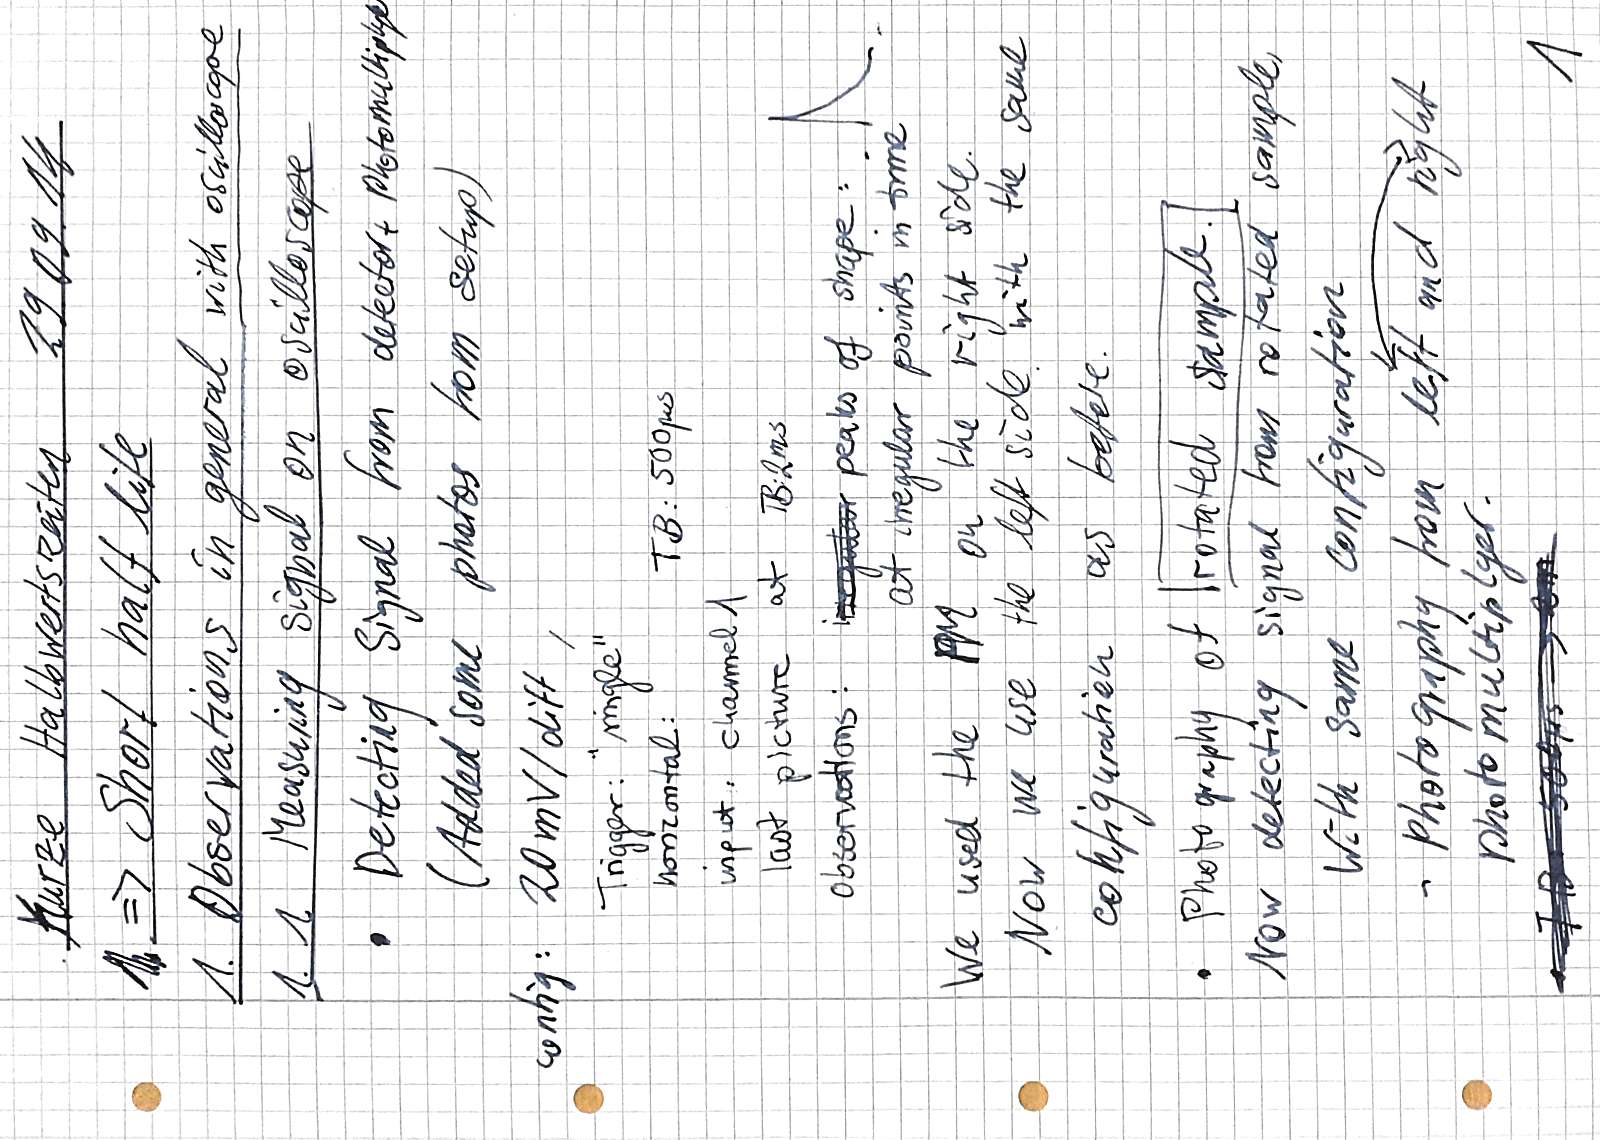 Kurze Halbwertszeiten 29.09.14
=> Short half life
1. Observations in general with oscilloscope
1.1 Measuring signal on oscilloscope
• Detecting Signal from detector + Photomultiplyer
(Added some photos from setup)
config: 20mV/diff,
Trigger: "single"
horizontal: TB: 500µs
input: channel 1
last picture at TB: 2ms
observations: peaks of shape:
at irregular points in time
We used the PM on the right side.
Now we use the left side with the same
configuration as before.
• Photography of rotated sample.
Now detecting signal from rotated sample,
with same configuration
- Photography from left and right
photomultiplyer.
1